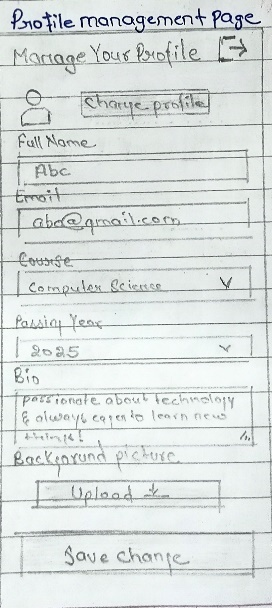 Profile management page
Manage Your Profile
Change profile
Full Name
Abc
Email
abc@gmail.com
Course
Computer Science
Passing Year
2025
Bio
passionate about technology
& always eager to learn new
things!
Background picture
Upload
Save change